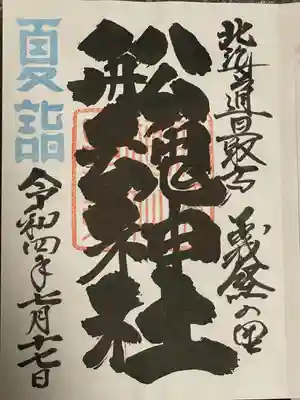 北海道最古
義経の里
船魂神社
夏詣
令和四年七月十七日